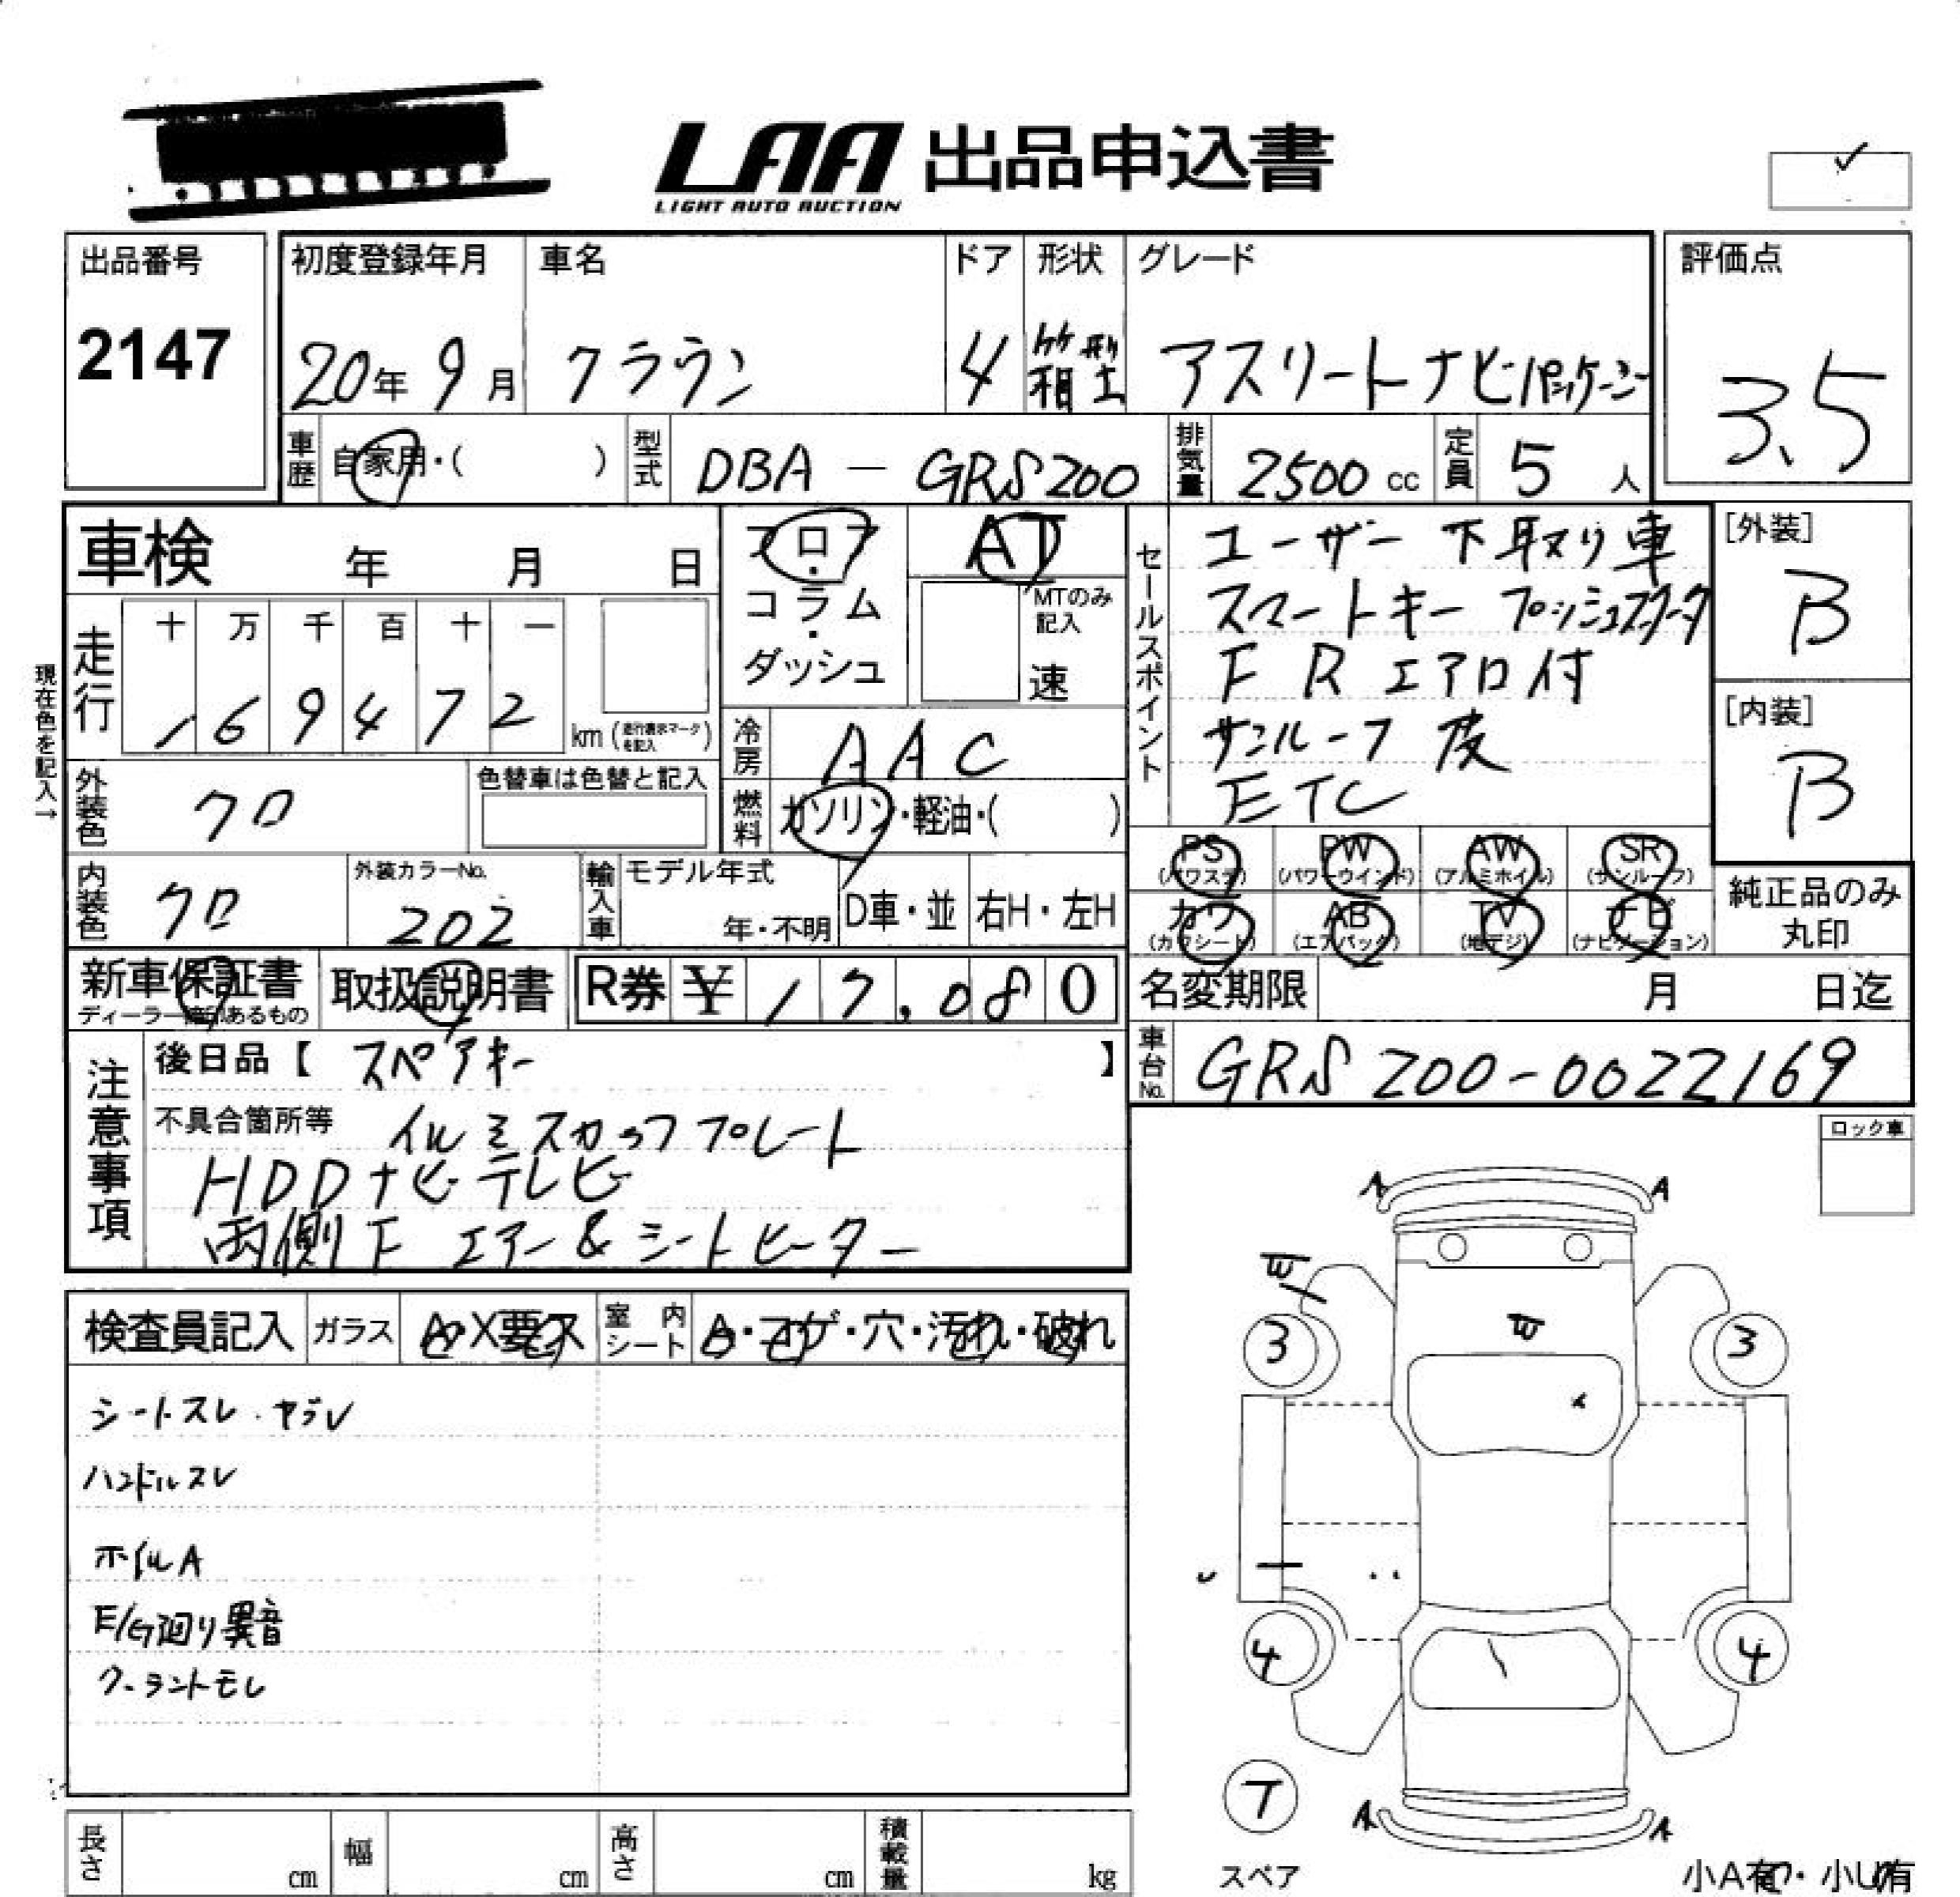 LAA 出品申込書
LIGHT AUTO AUCTION
出品番号
2147
初度登録年月
20年 9月
車名
クラウン
ドア
4
形状
箱型
グレード
アスリートナビパッケージ
評価点
3.5
車歴 自家用・( )
型式 DBA - GRS200
排気量 2500 cc
定員 5 人
車検 年 月 日
フロア・コラム・ダッシュ
AT
MTのみ記入
速
セールスポイント
ユーザー下取り車
スマートキー プッシュスタータ
F R エアロ付
サンルーフ 革
ETC
[外装]
B
[内装]
B
現在色を記入→
走行
十 万 千 百 十 一
1 6 9 4 7 2 km (走行表示マークを記入)
冷房 AAC
燃料 ガソリン・軽油・( )
外装色 クロ
色替車は色替と記入
内装色 クロ
外装カラーNo.
202
輸入車 モデル年式
年・不明
D車・並 右H・左H
PS (パワステ) PW (パワーウインド) AW (アルミホイル) SR (サンルーフ)
カワ (カワシート) AB (エアバック) TV (地デジ) ナビ (ナビゲーション)
純正品のみ
丸印
新車保証書
ディーラー確印あるもの
取扱説明書
R券 ¥ 17,080
名変期限 月 日迄
車台No. GRS200-0022169
注意事項
後日品【 スペアキー 】
不具合箇所等 イルミスカッフプレート
HDDナビ テレビ
両側F エアー&シートヒーター
ロック車
検査員記入 ガラス A・X要ス 室内シート A・コゲ・穴・汚れ・破れ
シートスレ・ヤブレ
ハンドルスレ
ホイルA
E/G廻り異音
クーラントモレ
A A
3 3
4 4
T
スペア
A A
長さ cm 幅 cm 高さ cm 積載量 kg
小A有・小U有